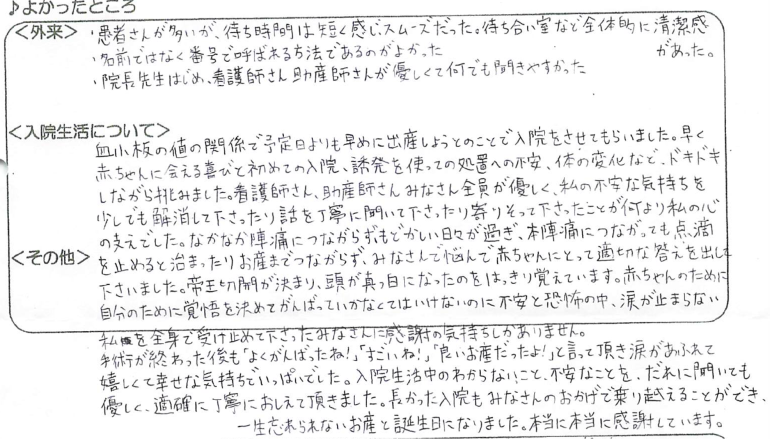 ♪よかったところ
<外来>
・患者さんが多いが、待ち時間は短く感じスムーズだった。待ち合い室など全体的に清潔感
があった。
・名前ではなく番号で呼ばれる方法であるのがよかった
・院長先生はじめ、看護師さん助産師さんが優しくて何でも聞きやすかった
<入院生活について>
血小板の値の関係で予定日よりも早めに出産しようとのことで入院をさせてもらいました。早く
赤ちゃんに会える喜びと初めての入院、誘発を使っての処置への不安、体の変化など、ドキドキ
しながら挑みました。看護師さん、助産師さんみなさん全員が優しく、私の不安な気持ちを
少しでも解消して下さったり話を丁寧に聞いて下さったり寄りそって下さったことが何より私の心
の支えでした。なかなか陣痛につながらずもどかしい日々が過ぎ、本陣痛につながっても点滴
<その他>
を止めると治まったりお産までつながらず、みなさんで悩んで赤ちゃんにとって適切な答えを出して
下さいました。帝王切開が決まり、頭が真っ白になったのをはっきり覚えています。赤ちゃんのために
自分のために覚悟を決めてがんばっていかなくてはいけないのに不安と恐怖の中、涙が止まらない
私を全身で受け止めて下さったみなさんに感謝の気持ちしかありません。
手術が終わった後も「よくがんばったね!」「すごいね!」「良いお産だったよ!」と言って頂き涙があふれて
嬉しくて幸せな気持ちでいっぱいでした。入院生活中のわからないこと、不安なことを、だれに聞いても
優しく、適確に丁寧におしえて頂きました。長かった入院もみなさんのおかげで乗り越えることができ、
一生忘れられないお産と誕生日になりました。本当に本当に感謝しています。